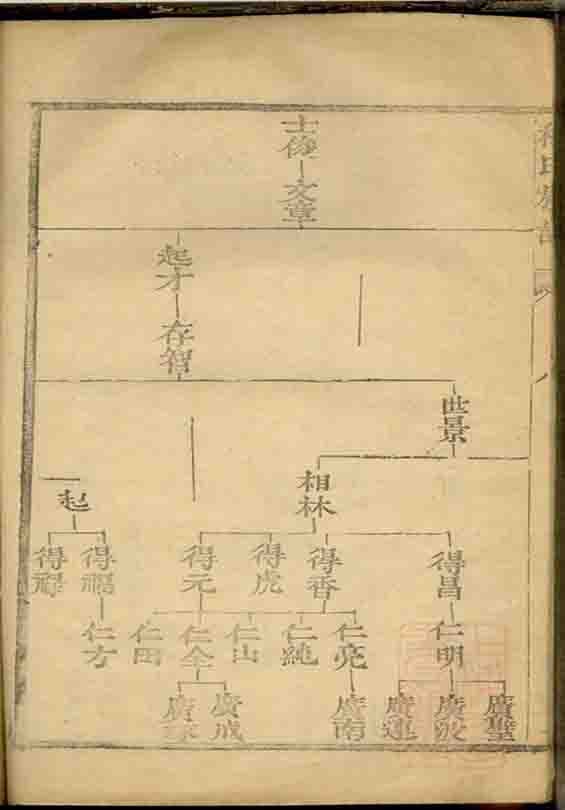 士俊
文章
起才
存智
世景
相林
起
得昌
得香
得虎
得元
得福
得祿
仁明
仁亮
仁純
仁山
仁全
仁田
仁方
廣聖
廣波
廣運
廣南
廣成